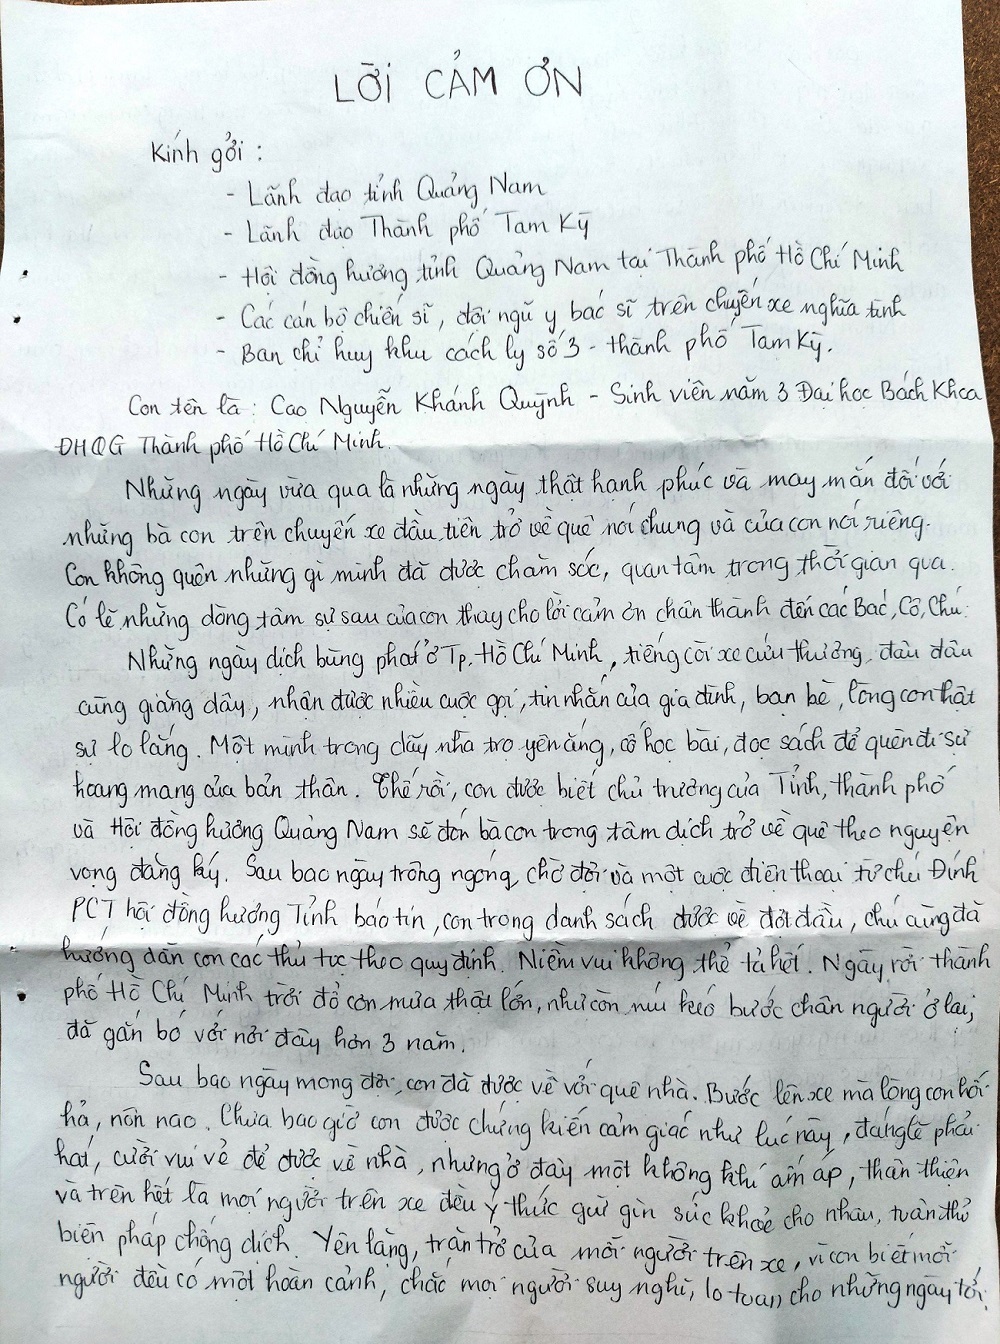 LỜI CẢM ƠN
Kính gởi :
- Lãnh đạo tỉnh Quảng Nam
- Lãnh đạo Thành phố Tam Kỳ
- Hội đồng hương tỉnh Quảng Nam tại Thành phố Hồ Chí Minh
- Các cán bộ chiến sĩ, đội ngũ y bác sĩ trên chuyến xe nghĩa tình
- Ban chỉ huy khu cách ly số 3 - thành phố Tam Kỳ.
Con tên là : Cao Nguyễn Khánh Quỳnh - Sinh viên năm 3 Đại học Bách Khoa
ĐHQG Thành phố Hồ Chí Minh
Những ngày vừa qua là những ngày thật hạnh phúc và may mắn đối với
những bà con trên chuyến xe đầu tiên trở về quê nói chung và của con nói riêng.
Con không quên những gì mình đã được chăm sóc, quan tâm trong thời gian qua.
Có lẽ những dòng tâm sự sau của con thay cho lời cảm ơn chân thành đến các Bác, Cô, Chú.
Những ngày dịch bùng phát ở Tp. Hồ Chí Minh, tiếng còi xe cứu thương đâu đâu
cũng giăng dây, nhận được nhiều cuộc gọi, tin nhắn của gia đình, bạn bè, lòng con thật
sự lo lắng. Một mình trong dãy nhà trọ yên ắng, cố học bài, đọc sách để quên đi sự
hoang mang của bản thân. Thế rồi, con được biết chủ trương của Tỉnh, thành phố
và Hội đồng hương Quảng Nam sẽ đón bà con trong tâm dịch trở về quê theo nguyện
vọng đăng ký. Sau bao ngày trông ngóng, chờ đợi và một cuộc điện thoại từ chú Đính
PCT hội đồng hương Tỉnh báo tin, con trong danh sách được về đợt đầu, chú cũng đã
hướng dẫn con các thủ tục theo quy định. Niềm vui không thể tả hết. Ngày rời thành
phố Hồ Chí Minh trời đổ cơn mưa thật lớn, như còn níu kéo bước chân người ở lại,
đã gắn bó với nơi đây hơn 3 năm.
Sau bao ngày mong đợi, con đã được về với quê nhà. Bước lên xe mà lòng con hối
hả, nôn nao. Chưa bao giờ con được chứng kiến cảm giác như lúc này, đáng lẽ phải
hát, cười vui vẻ để được về nhà, nhưng ở đây một không khí ấm áp, thân thiện
và trên hết là mọi người trên xe đều ý thức giữ gìn sức khoẻ cho nhau, tuân thủ
biện pháp chống dịch. Yên lặng, trăn trở của mỗi người trên xe, vì con biết mỗi
người đều có một hoàn cảnh, chắc mọi người suy nghĩ, lo toan cho những ngày tới.